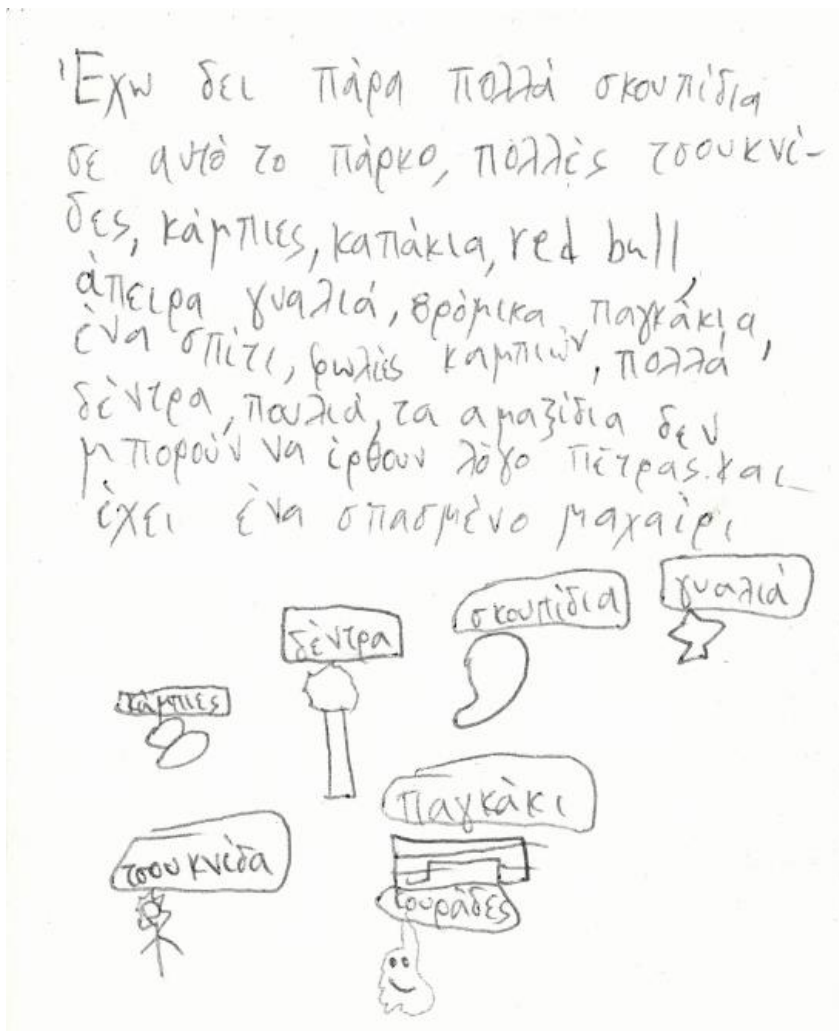 Έχω δει πάρα πολλά σκουπίδια
σε αυτό το πάρκο, πολλές τσουκνί-
δες, κάμπιες, καπάκια, red bull,
άπειρα γυαλιά, βρόμικα παγκάκια,
ένα σπίτι, φωλιές καμπιών, πολλά
δέντρα, πουλιά, τα αμαξίδια δεν
μπορούν να έρθουν λόγο πέτρας και
έχει ένα σπασμένο μαχαίρι
γυαλιά
σκουπίδια
δέντρα
κάμπιες
παγκάκι
τσουκνίδα
κουράδες